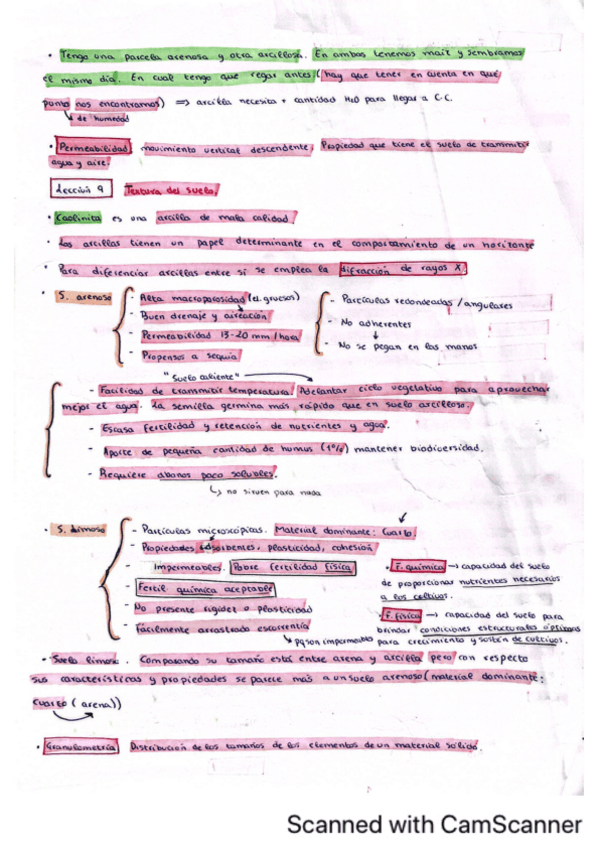 · Tengo una parcela arenosa y otra arcillosa. En ambas tenemos maíz y sembramos
el mismo día. En cual tengo que regar antes (hay que tener en cuenta en qué
punto nos encontramos) => arcilla necesita + cantidad H2O para llegar a C.C.
↳ de humedad
· Permeabilidad movimiento vertical descendente. Propiedad que tiene el suelo de transmitir
agua y aire.
Lección 9 Textura del suelo.
· Caolinita es una arcilla de mala calidad.
· Las arcillas tienen un papel determinante en el comportamiento de un horizonte
· Para diferenciar arcillas entre sí se emplea la difracción de rayos X.
· S. arenoso
- Alta macroporosidad (el. gruesos)
- Buen drenaje y aireación
- Permeabilidad 13-20 mm/hora
- Propensos a sequía
- Partículas redondeadas/angulares
- No adherentes
↓
- No se pegan en las manos
"Suelo caliente"
- Facilidad de transmitir temperatura. Adelantar ciclo vegetativo para aprovechar
mejor el agua. La semilla germina más rápido que en suelo arcilloso.
- Escasa fertilidad y retención de nutrientes y agua.
- Aporte de pequeña cantidad de humus (1%) mantener biodiversidad.
- Requiere abonos poco solubles.
↳ no sirven para nada
· S. Limoso
- Partículas microscópicas. Material dominante: Cuarzo.
- Propiedades adsorbentes, plasticidad, cohesión
Impermeables. Pobre fertilidad física
- Fertil química aceptable
- No presente rigidez o plasticidad
- Fácilmente arrastrado escorrentía
↳ pq son impermeables
· F. química → capacidad del suelo
de proporcionar nutrientes necesarios
a los cultivos.
· F. física → capacidad del suelo para
brindar condiciones estructurales óptimas
para crecimiento y sostén de cultivos.
· Suelo limoso. Comparando su tamaño está entre arena y arcilla pero con respecto
sus características y propiedades se parece más a un suelo arenoso (material dominante:
cuarzo (arena))
· Granulometría Distribución de los tamaños de los elementos de un material sólido.
Scanned with CamScanner